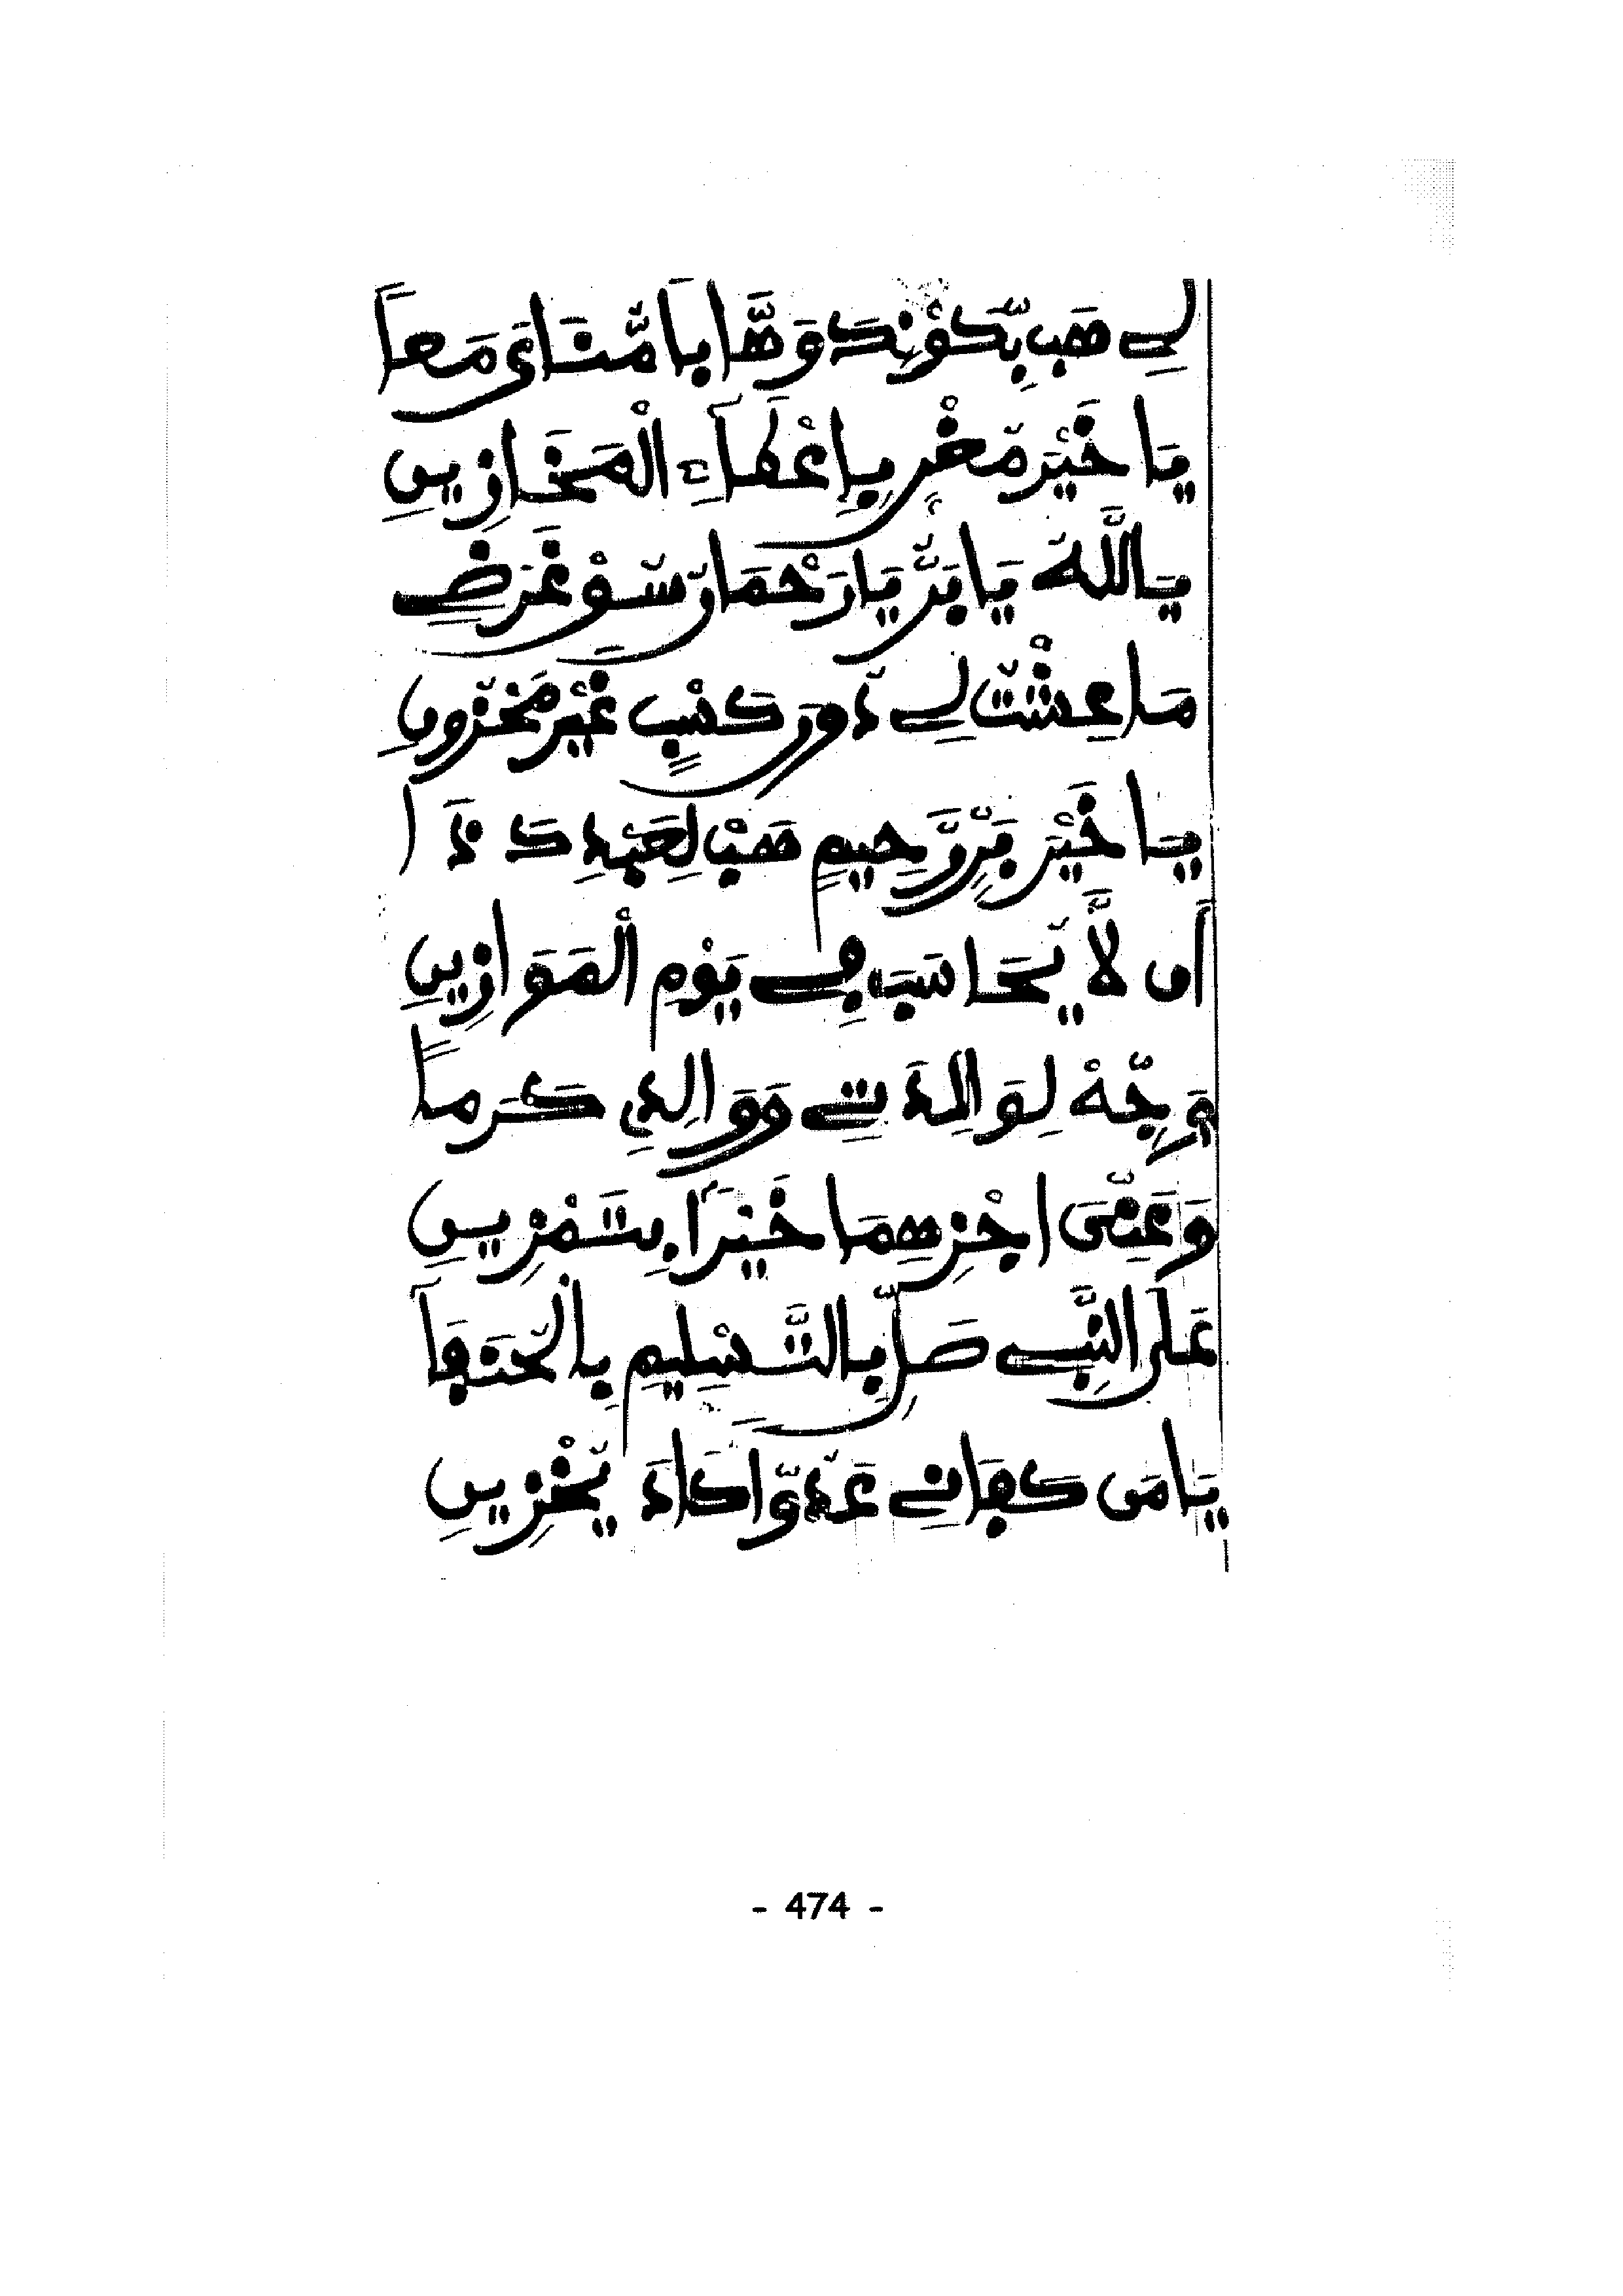 لِے هَبْ بِّكَوْنِكَ وَهَّاباً مُّنَايَ مَعاً
يَا خَيْرَ مُغْنٍ بِإِعْطَاءِ الْمَخَازِينِ
يَا اللَّهُ يَا بَرُّ يَا رَحْمَانُ سُوْ غَرَضِے
مَا عِشْتُ لِے دُورَ كَسْبٍ غَيْرَ مَخْزُونِ
يَا خَيْرَ بَرٍّ رَّحِيمٍ هَبْ لِعَبْدِكَ ذَا
أَن لَّا يُحَاسَبَ فِے يَوْمِ الْمَوَازِينِ
وَجِّهْ لِوَالِدَتِے وَوَالِدِي كَرَماً
وَعَنِّىَ اجْزِهِمَا خَيْراً بِتَمْزِيزِ
عَلَى النَّبِے صَلِّ بِالتَّسْلِيمِ يَا لُحَنَفَا
يَا مَن كَفَانِے عَدُوّاً كَادَ يُخْزِينِ
- 474 -